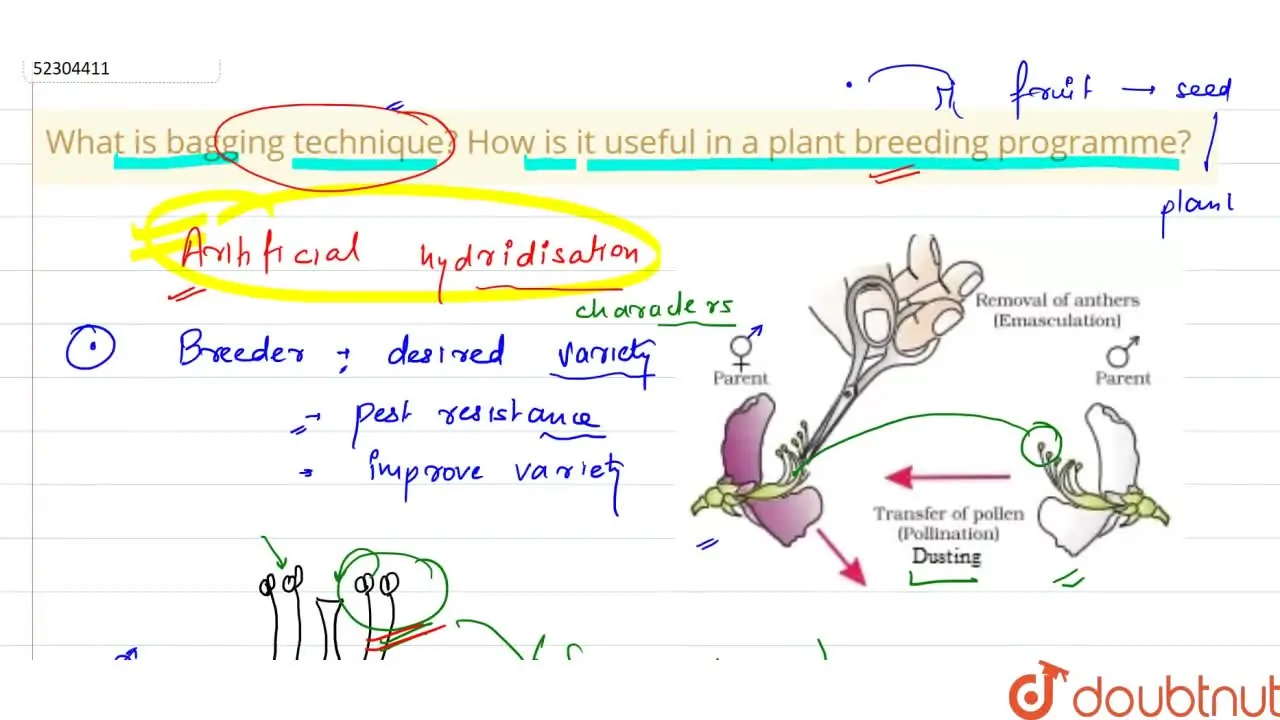 52304411
fruit → seed
plant
What is bagging technique? How is it useful in a plant breeding programme?
Artificial hydridisation
characters
Breeder : desired variety
→ pest resistance
improve variety
Removal of anthers
(Emasculation)
Parent
Parent
Transfer of pollen
(Pollination)
Dusting
doubtnut